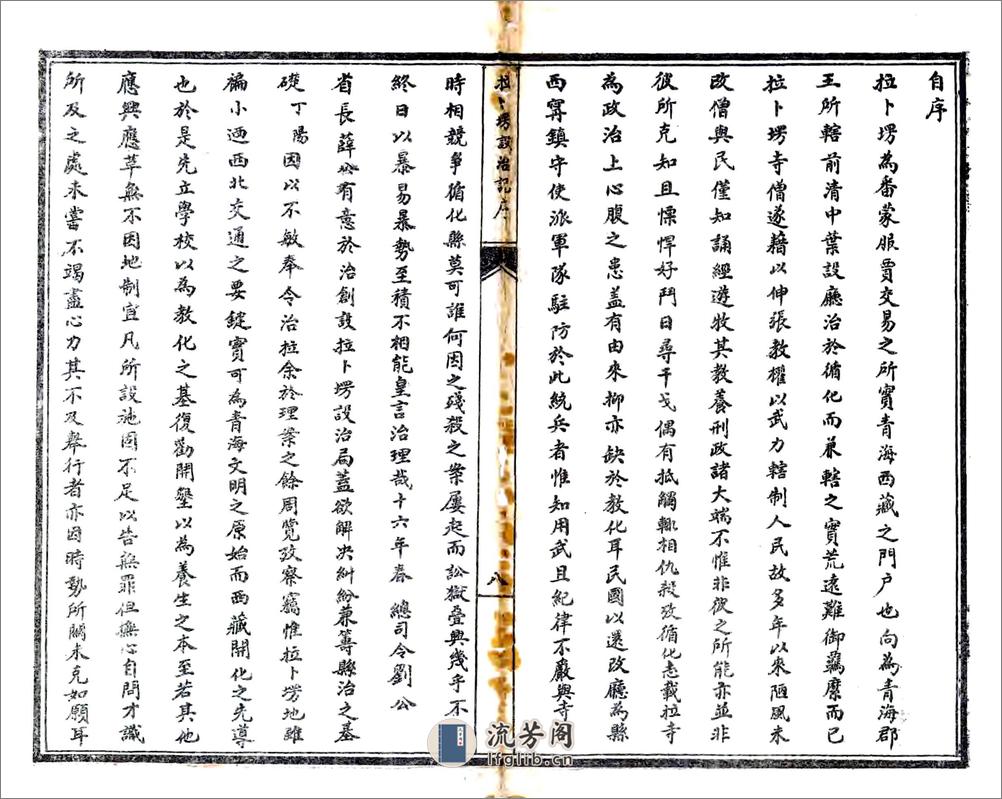 自序
拉卜塄為番蒙服賈交易之所實青海西藏之門户也向為青海郡
王所轄前清中葉設廳治於循化而兼轄之實荒遠難御羈縻而已
拉卜塄寺僧遂藉以伸張教權以武力轄制人民故多年以來陋風未
改僧與民僅知誦經遊牧其教養刑政諸大端不惟非彼之所能亦並非
彼所克知且慓悍好鬥日尋干戈偶有抵觸輒相仇殺攷循化志載拉寺
為政治上心腹之患盖有由來抑亦缺於教化耳民國以還改廳為縣
西寧鎮守使派軍隊駐防於此統兵者惟知用武且紀律不嚴與寺
拉卜塄設治記序
八
時相競爭循化縣莫可誰何因之殘殺之案屢起而訟獄叠興幾乎不
終日以暴易暴勢至積不相能皇言治理哉十六年春 總司令劉公
省長薛公有意於治創設拉卜塄設治局蓋欲解决糾紛兼籌縣治之基
礎丁陽因以不敏奉令治拉余於理案之餘周覽攷察竊惟拉卜塄地雖
褊小迺西北交通之要錠實可為青海文明之原始而西藏開化之先導
也於是先立學校以為教化之基復勸開墾以為養生之本至若其他
應興應革無不因地制宜凡所設施固不足以告無罪但撫心自問才識
所及之處未嘗不竭盡心力其不及舉行者亦因時勢所關未克如願耳
流芳阁
lfglib.cn